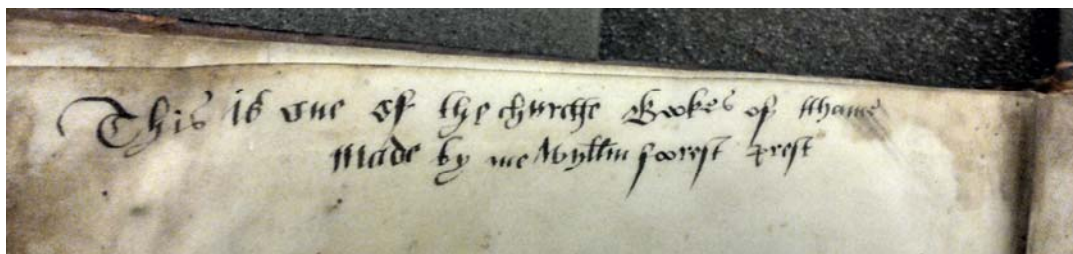 This is one of the churche Bookes of thame
Made by me Wyllm fforest prest